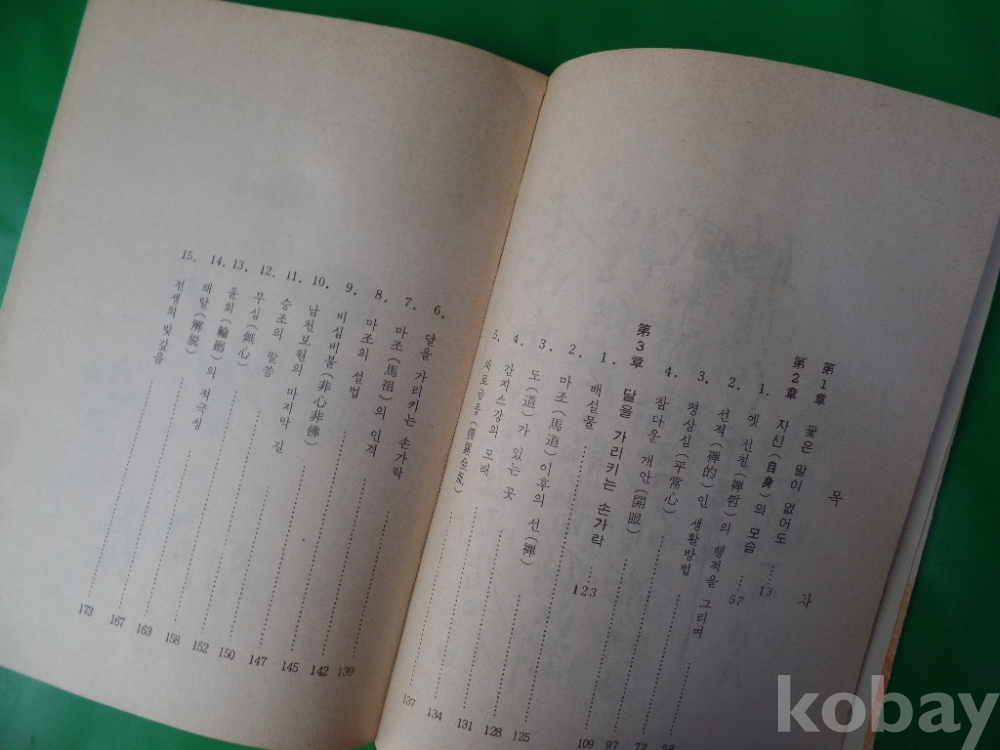 목 차
第1章 꽃은 말이 없어도 13
第2章 자신(自身)의 모습 57
1. 옛 선철(禪哲)의 행적을 그리며
2. 선적(禪的)인 생활방법
3. 평상심(平常心) 97
4. 참다운 개안(開眼) 109
第3章 달을 가리키는 손가락 123
1. 배설물 125
2. 마조(馬道) 이후의 선(禪) 128
3. 도(道)가 있는 곳 131
4. 간지스강의 모래 134
5. 137
6. 달을 가리키는 손가락 139
7. 마조(馬祖)의 인격 142
8. 마조의 설법 145
9. 비심비불(非心非佛) 147
10. 남천보원의 마지막 길 150
11. 승조의 말씀 152
12. 무심(無心) 158
13. 윤회(輪廻) 163
14. 해탈(解脫)의 적극성 167
15. 전생의 빚갚음 173
kobay